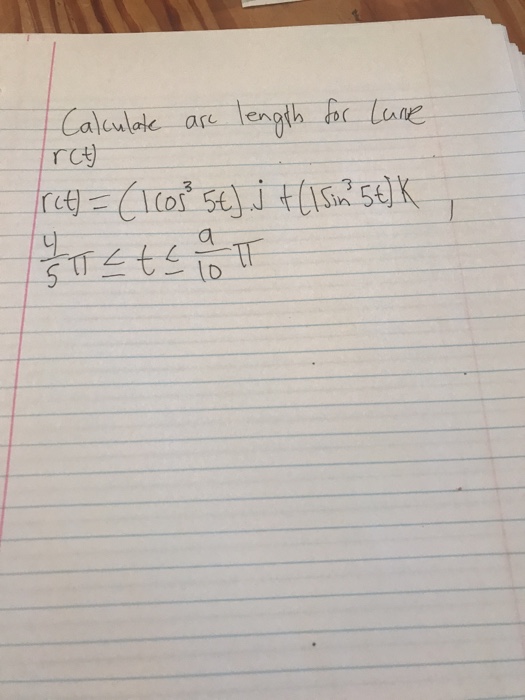 Calculate arc length for Curve
r(t)
r(t) = (1cos³ 5t) j + (1sin³ 5t) K ,
4/5 π ≤ t ≤ 9/10 π